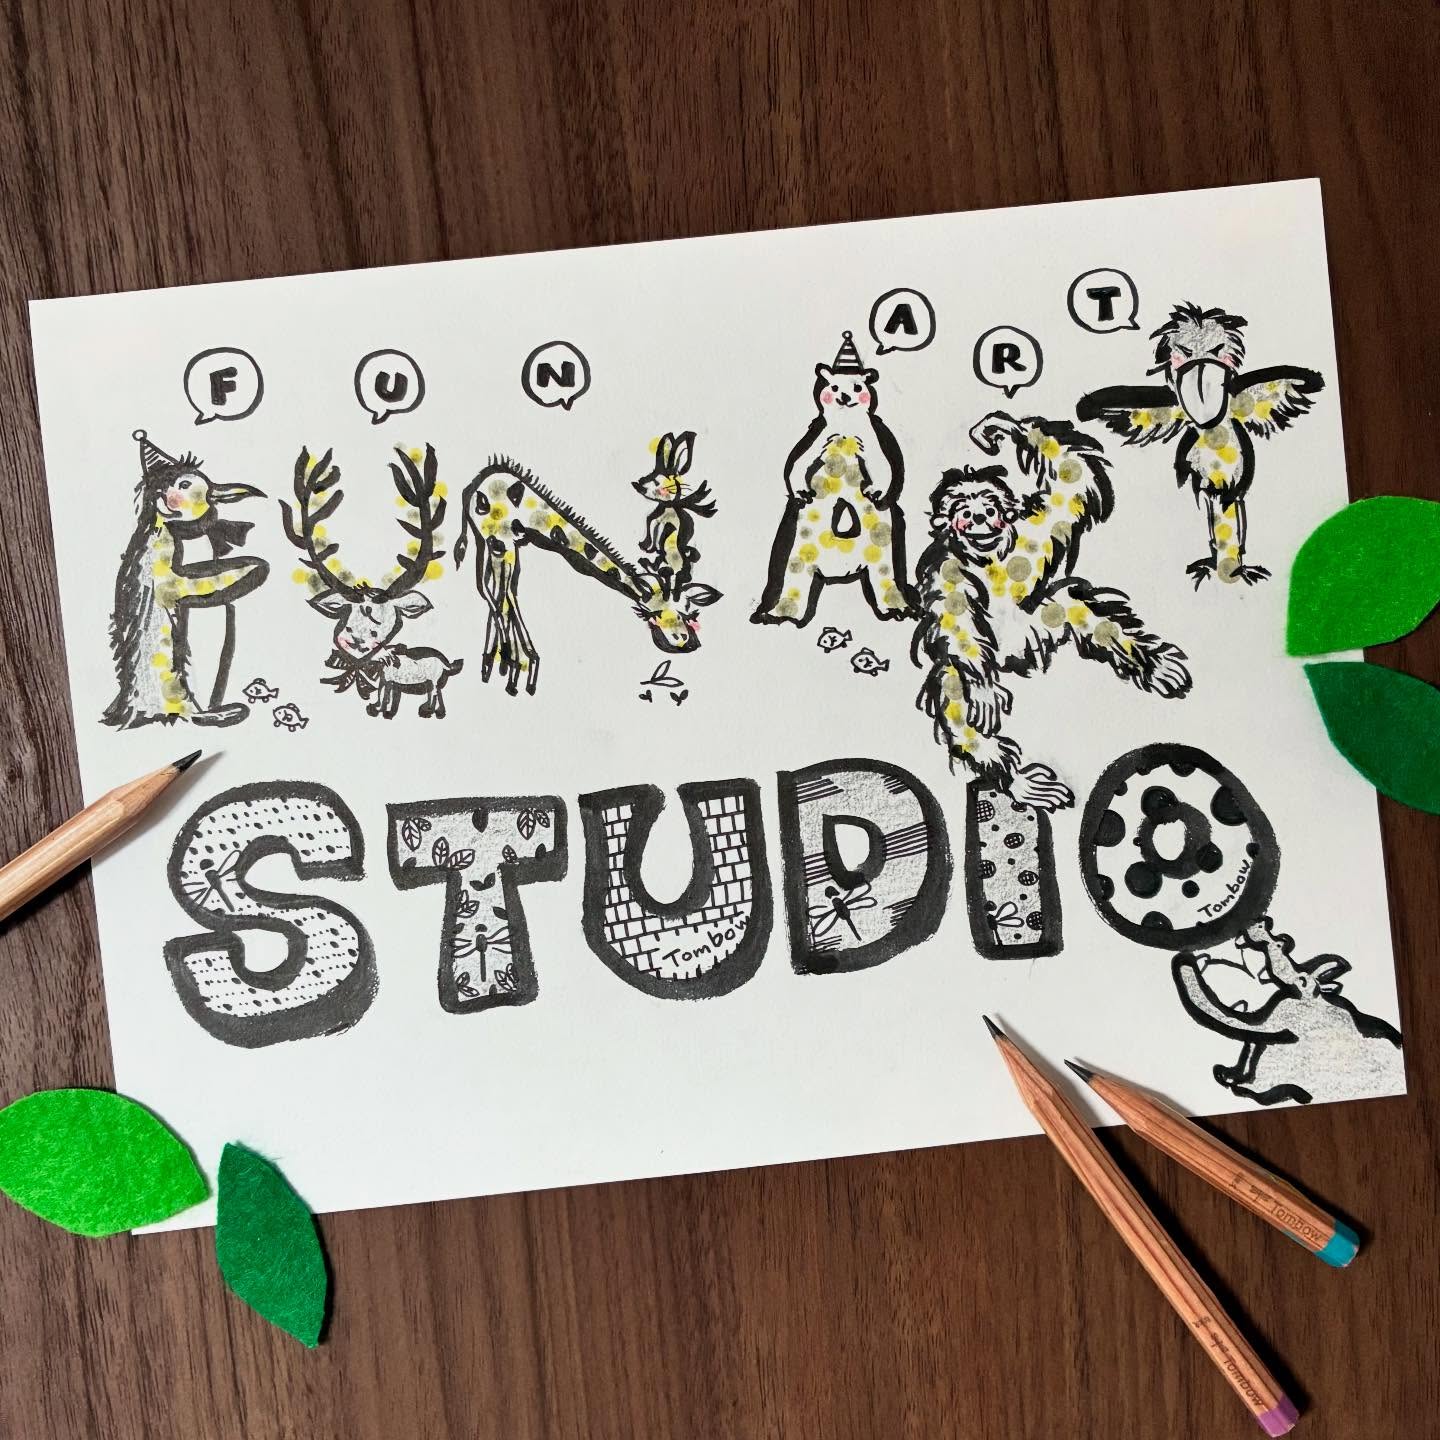 FUN ART
STUDIO
Tombow
Tombow
Tombow
Tombow